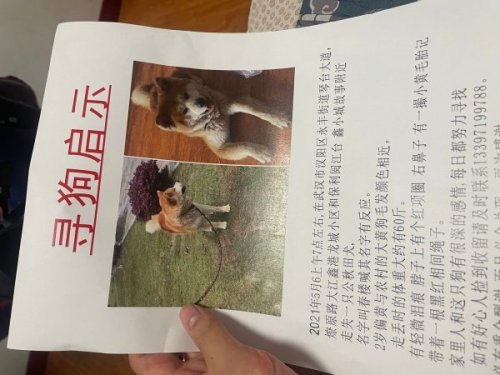 寻狗启示
2021年5月6上午7点左右,在武汉市汉阳区永丰街道琴台大道,
燎原路大江鑫港龙城小区和保利阅江台 鑫小城故事附近
走失一只公秋田犬。
名字叫春楼喊其名字有反应。
2岁偏黄与农村的大黄狗毛发颜色相近,
走丢时的体重大约有60斤。
有轻微泪痕 脖子上有个红项圈 右鼻子 有一撮小黄毛胎记
带着一根黑红相间绳子。
家里人和这只狗有很深的感情,每日都努力寻找
如有好心人捡到收留请及时联系13397199788。